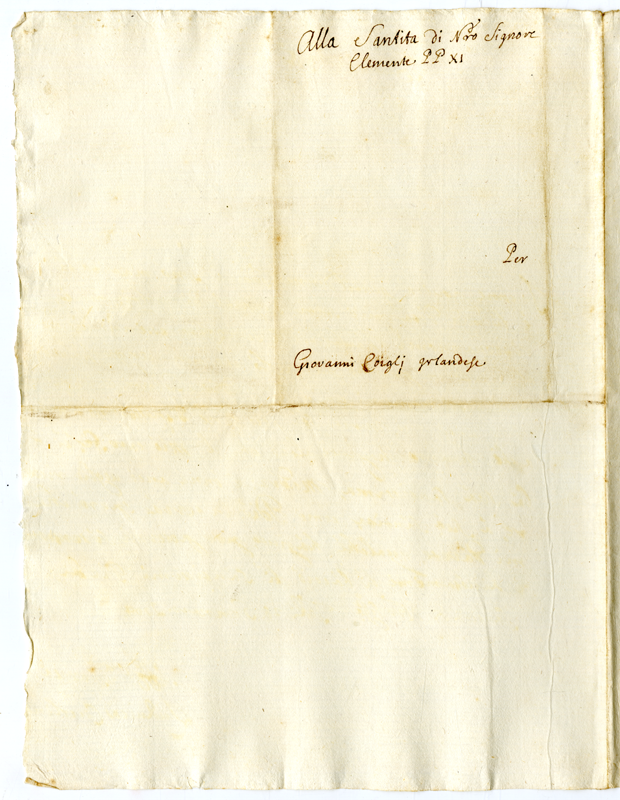 Alla Santita di Nro Signore
Clemente PP XI
Per
Giovanni Coigly Irlandese